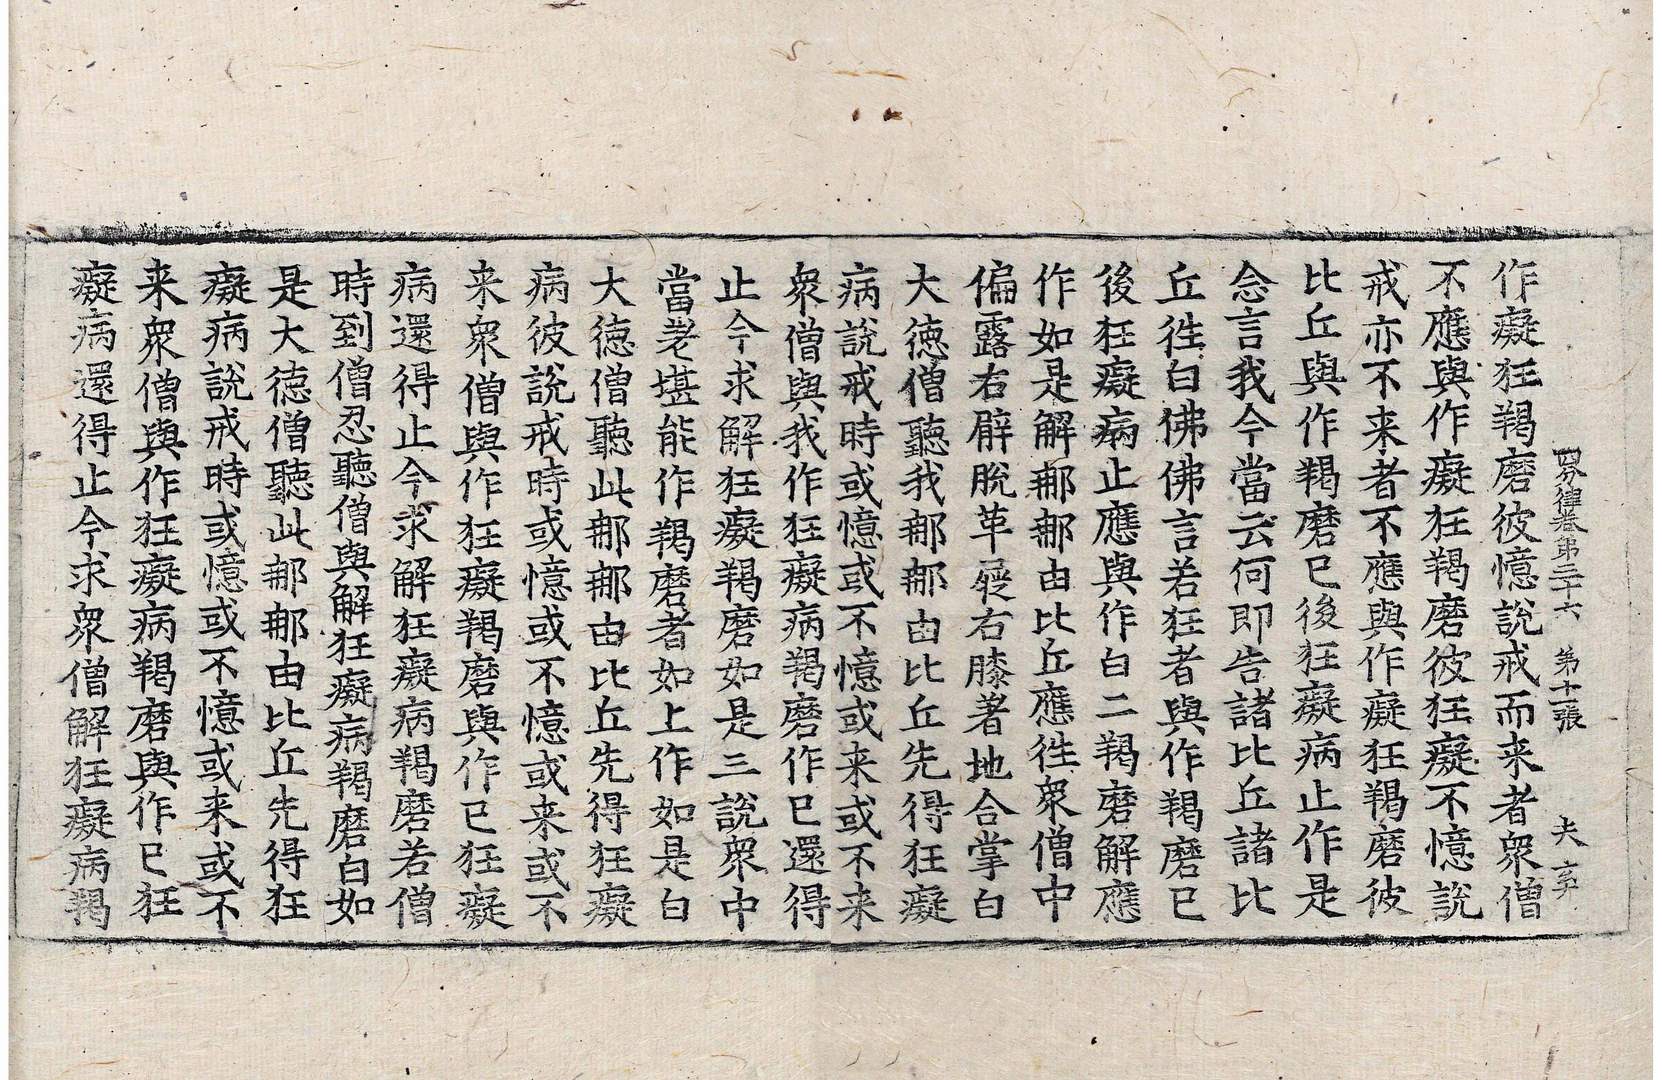 四分律卷第三十六 第十一張 夫 亥
作癡狂羯磨彼憶說戒而来者衆僧
不應與作癡狂羯磨彼狂癡不憶說
戒亦不来者不應與作癡狂羯磨彼
比丘與作羯磨已後狂癡病止作是
念言我今當云何即告諸比丘諸比
丘徃白佛佛言若狂者與作羯磨已
後狂癡病止應與作白二羯磨解應
作如是解那那由比丘應徃衆僧中
偏露右臂脫革屣右膝著地合掌白
大徳僧聽我那那由比丘先得狂癡
病說戒時或憶或不憶或来或不来
衆僧與我作狂癡病羯磨作已還得
止今求解狂癡羯磨如是三說衆中
當差堪能作羯磨者如上作如是白
大徳僧聽此那那由比丘先得狂癡
病彼說戒時或憶或不憶或来或不
来衆僧與作狂癡羯磨與作已狂癡
病還得止今求解狂癡病羯磨若僧
時到僧忍聽僧與解狂癡病羯磨白如
是大徳僧聽此那那由比丘先得狂
癡病說戒時或憶或不憶或来或不
来衆僧與作狂癡病羯磨與作已狂
癡病還得止今求衆僧解狂癡病羯